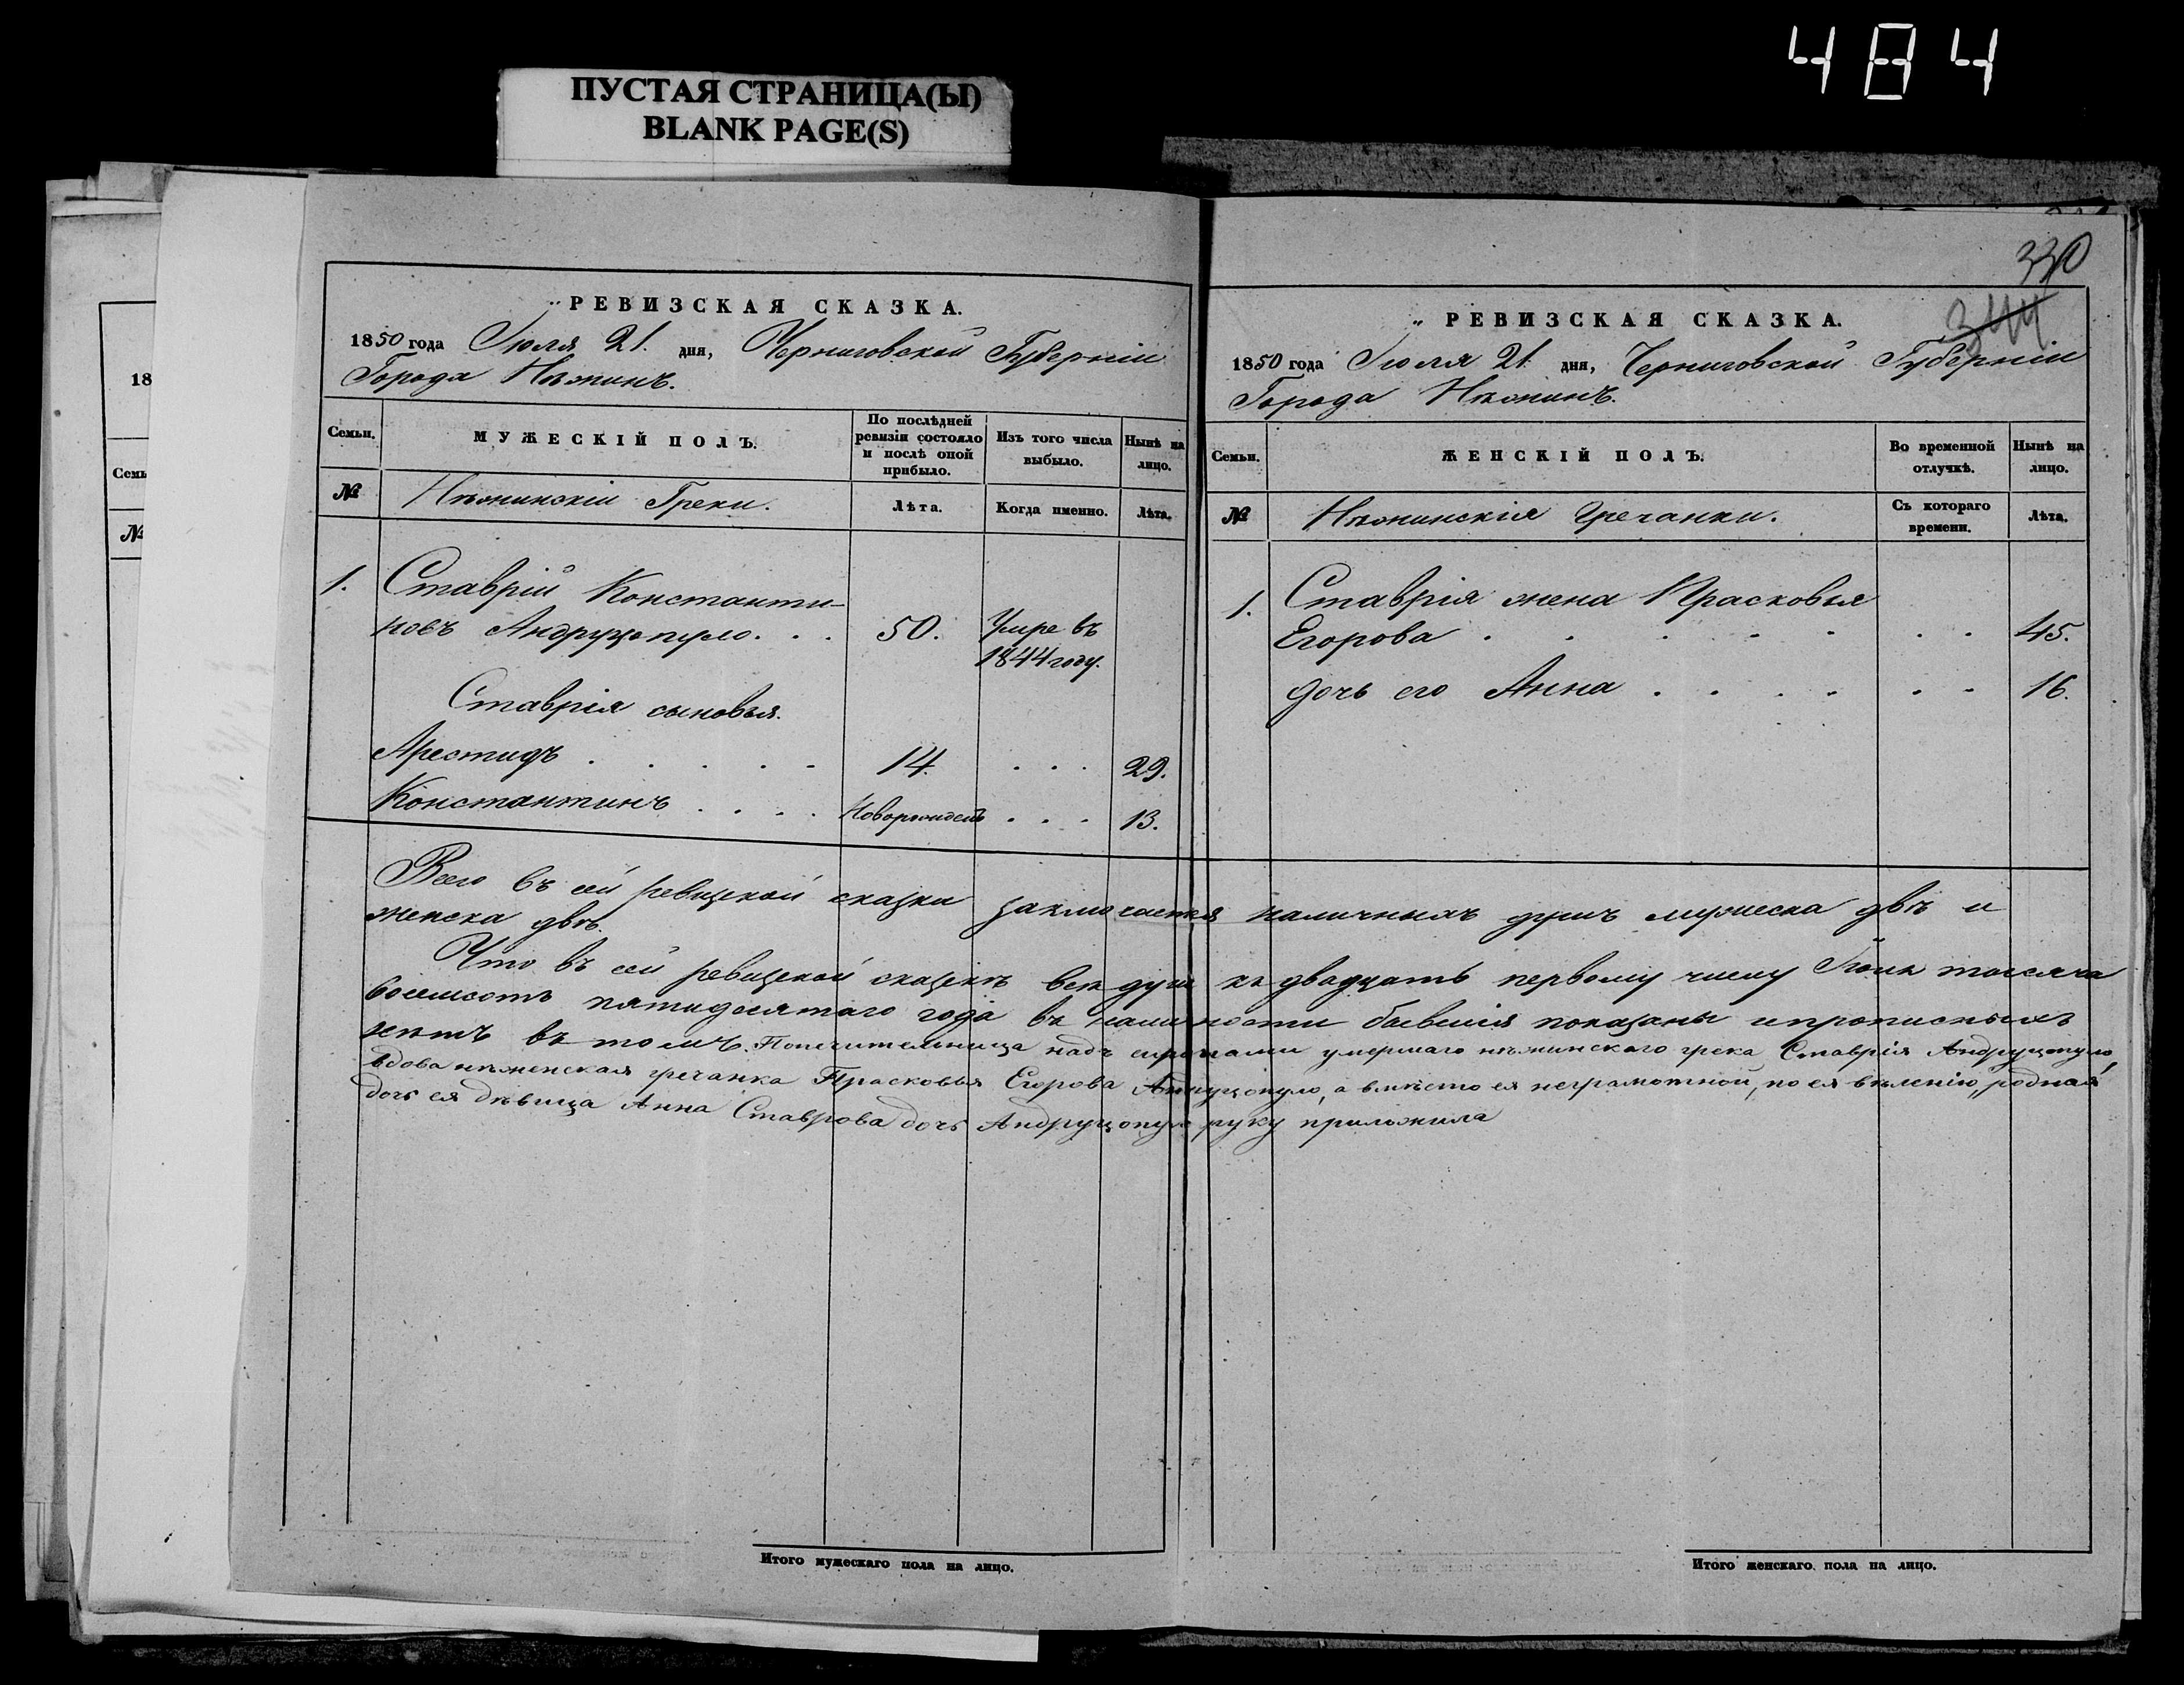 484
ПУСТАЯ СТРАНИЦА(Ы)
BLANK PAGE(S)
18
Семь
№
РЕВИЗСКАЯ СКАЗКА.
1850 года Іюля 21. дня, Черниговской Губерніи
Города Нѣжинъ.
Семьи.
МУЖЕСКІЙ ПОЛЪ.
По послѣдней ревизіи состояло и послѣ оной прибыло.
Изъ того числа выбыло.
Нынѣ на лицо.
№
Нѣжинскіи Греки.
Лѣта.
Когда именно.
Лѣта.
1. Ставрій Константи-
новъ Андруцопуло. . . 50. Умре въ
1844 году.
Ставрія сыновья.
Арестидъ . . . . . 14. . . . 29.
Константинъ . . . . Новорожденъ . . . 13.
330
344
РЕВИЗСКАЯ СКАЗКА.
1850 года Іюля 21. дня, Черниговской Губерніи
Города Нѣжинъ.
Семьи.
ЖЕНСКІЙ ПОЛЪ.
Во временной отлучкѣ.
Нынѣ на лицо.
№
Нѣжинскія Гречанки.
Съ котораго времени.
Лѣта.
1. Ставрія жена Прасковья
Егорова . . . . . . . 45.
дочь его Анна . . . . . . 16.
Всего въ сей ревизской сказки заключается наличныхъ душъ мужеска двѣ и
женска двѣ.
Что въ сей ревизской сказкѣ всѣ души къ двадцать первому числу Іюля тысяча
восемсотъ пятидесятаго года въ наличности бывшія показаны и прописныхъ
нѣтъ въ томъ. Попечительница надъ сиротами умершаго нѣжинскаго грека Ставрія Андруцопуло,
вдова нѣженская гречанка Прасковья Егорова Андруцопуло, а вмѣсто ея неграмотной, по ея велению, родная
дочь ея дѣвица Анна Ставрова дочь Андруцопуло руку приложила
Итого мужескаго пола на лицо.
Итого женскаго пола на лицо.